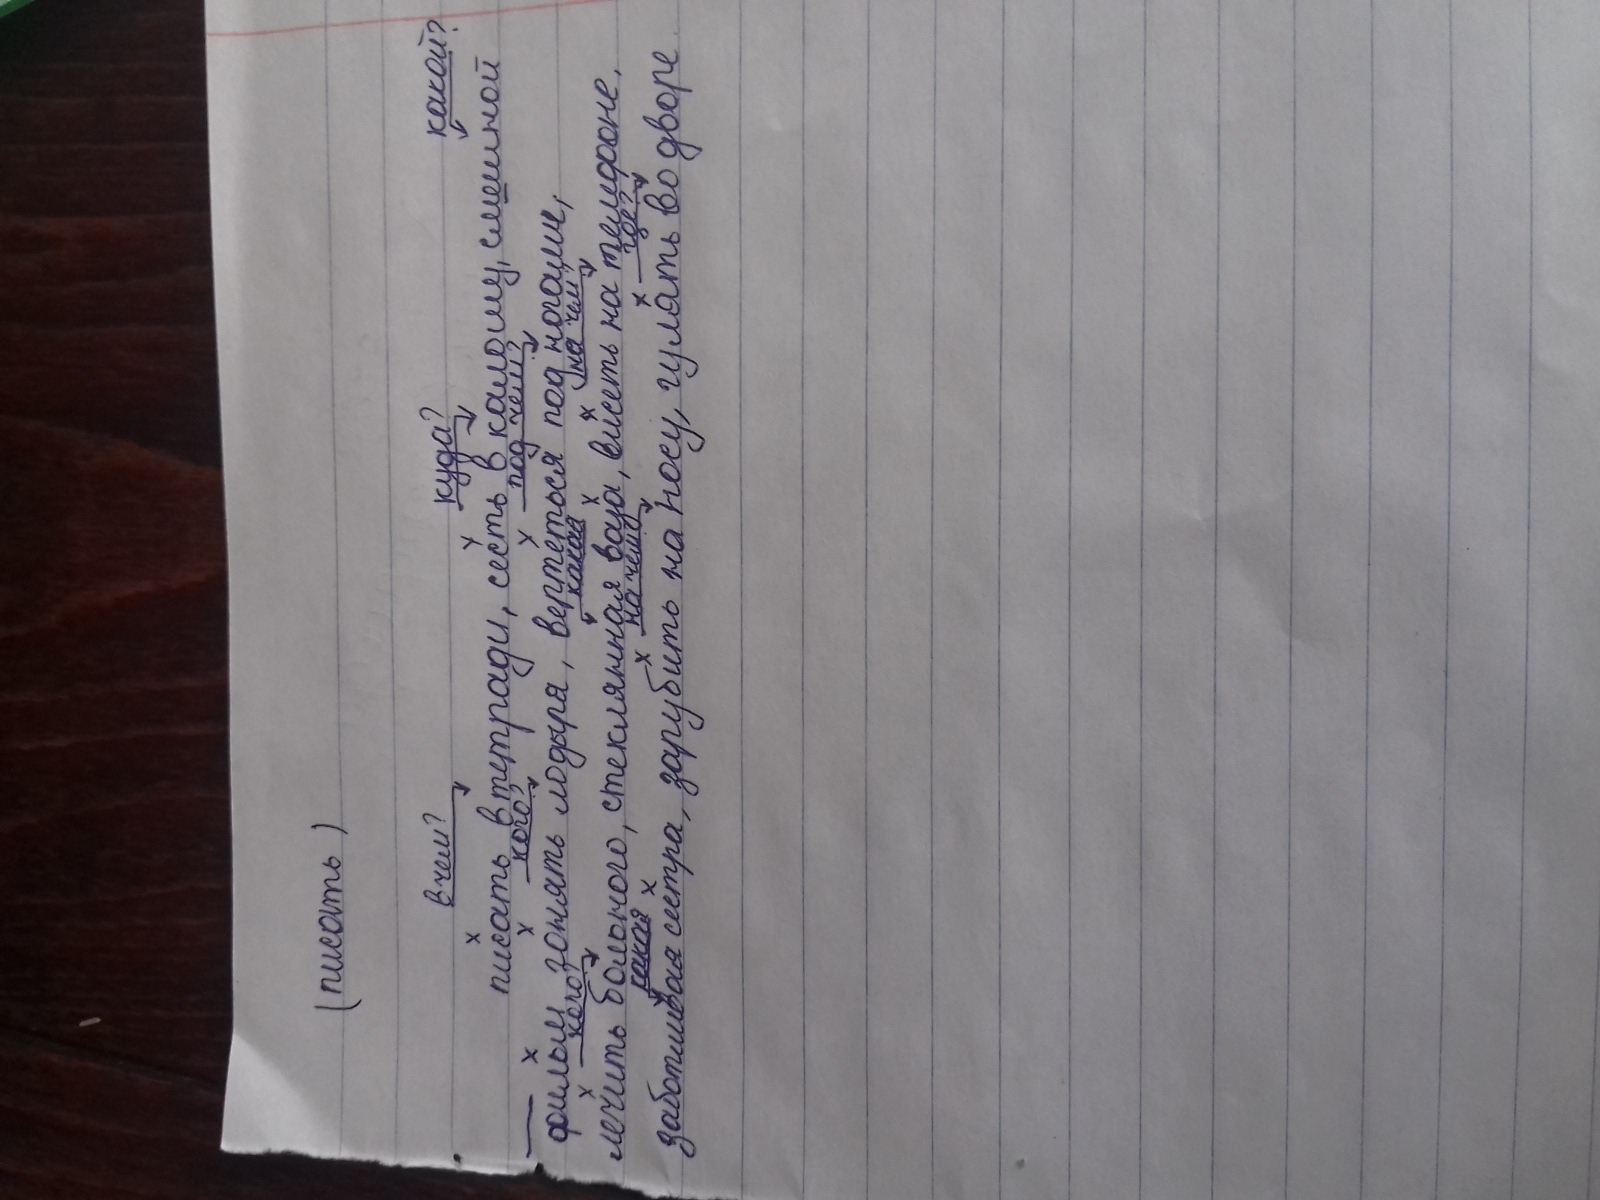 (писать)
в чем? куда? какой?
х х
писать в тетради, сесть в калошу, смешной
х кого? х под чем?
фильм, гонять лодыря, вертеться под ногами,
х кого? какая х х на чем?
лечить больного, стеклянная ваза, висеть на телефоне,
какая х х на чем? х где?
заботливая сестра, зарубить на носу, гулять во дворе.